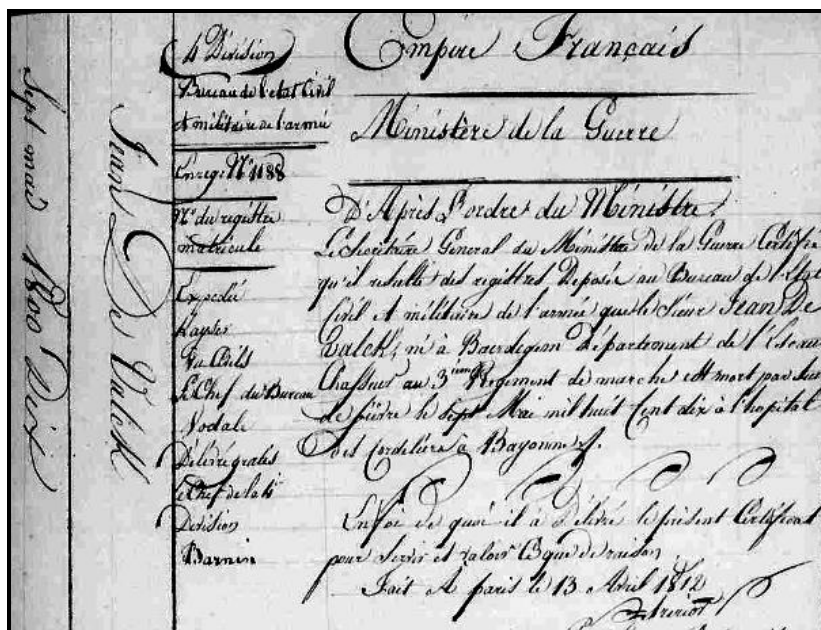 Sept mai 1800 Dix
Jean De Valck
4 Division
Bureau de l'etat Civil
et militaire de l'armée
Enregé N° 1188
N° du registre
matricule
Expedié
Kayser
Vu Bils
Le Chef du Bureau
Nodale
Délivré gratis
le Chef de la 4e
Division
Barnin
Empire Français
Ministère de la Guerre
D'Après l'ordre du Ministre
Le Secretaire General du Ministre de la Guerre Certifie
qu'il resulte des registres Deposés au Bureau de l'Etat
Civil et militaire de l'armée que le Sieur Jean De
Valck, né à Baerdegem Département de l'Escau
Chasseur au 3ieme Regiment de marche est mort par suite
de fièvre le Sept Mai mil huit Cent dix à l'hopital
des Cordeliers à Bayonne
En foi de quoi il à Délivré le présent Certificat
pour servir et valoir Ce que de raison
Fait A paris le 13 Avril 1812